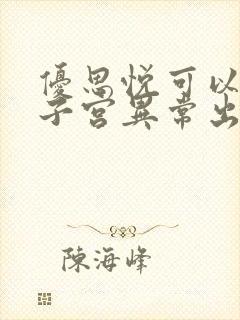 優思悅可以
子宮異常出
陳海峰